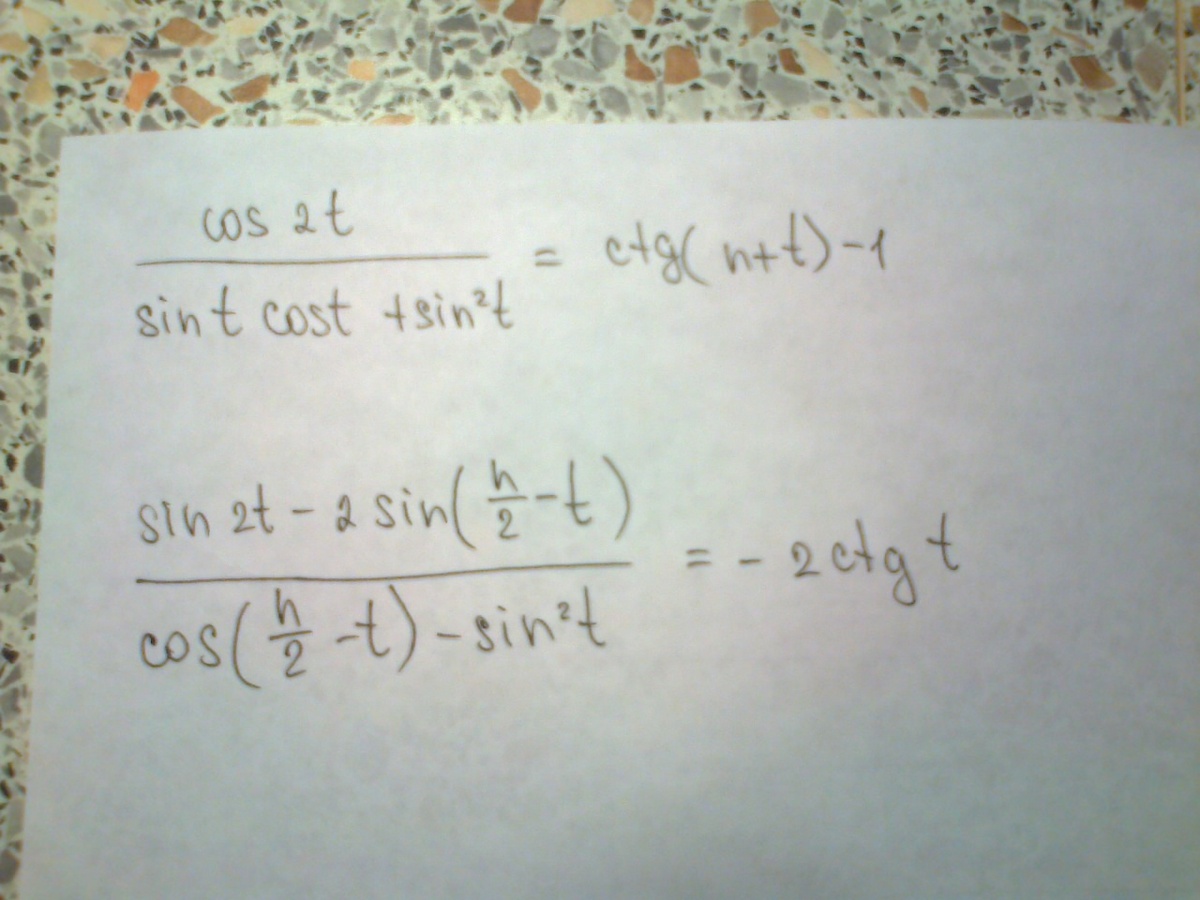 cos 2t / sin t cost + sin²t = ctg(π+t)-1
sin 2t - 2 sin(π/2 - t) / cos(π/2 - t) - sin²t = - 2 ctg t